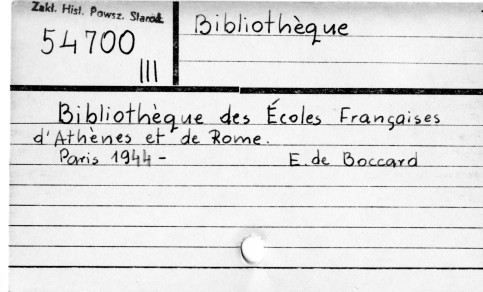 Zakł. Hist. Powsz. Staroż.
54700
III
Bibliothèque
Bibliothèque des Écoles Françaises
d'Athènes et de Rome.
Paris 1944 - E. de Boccard